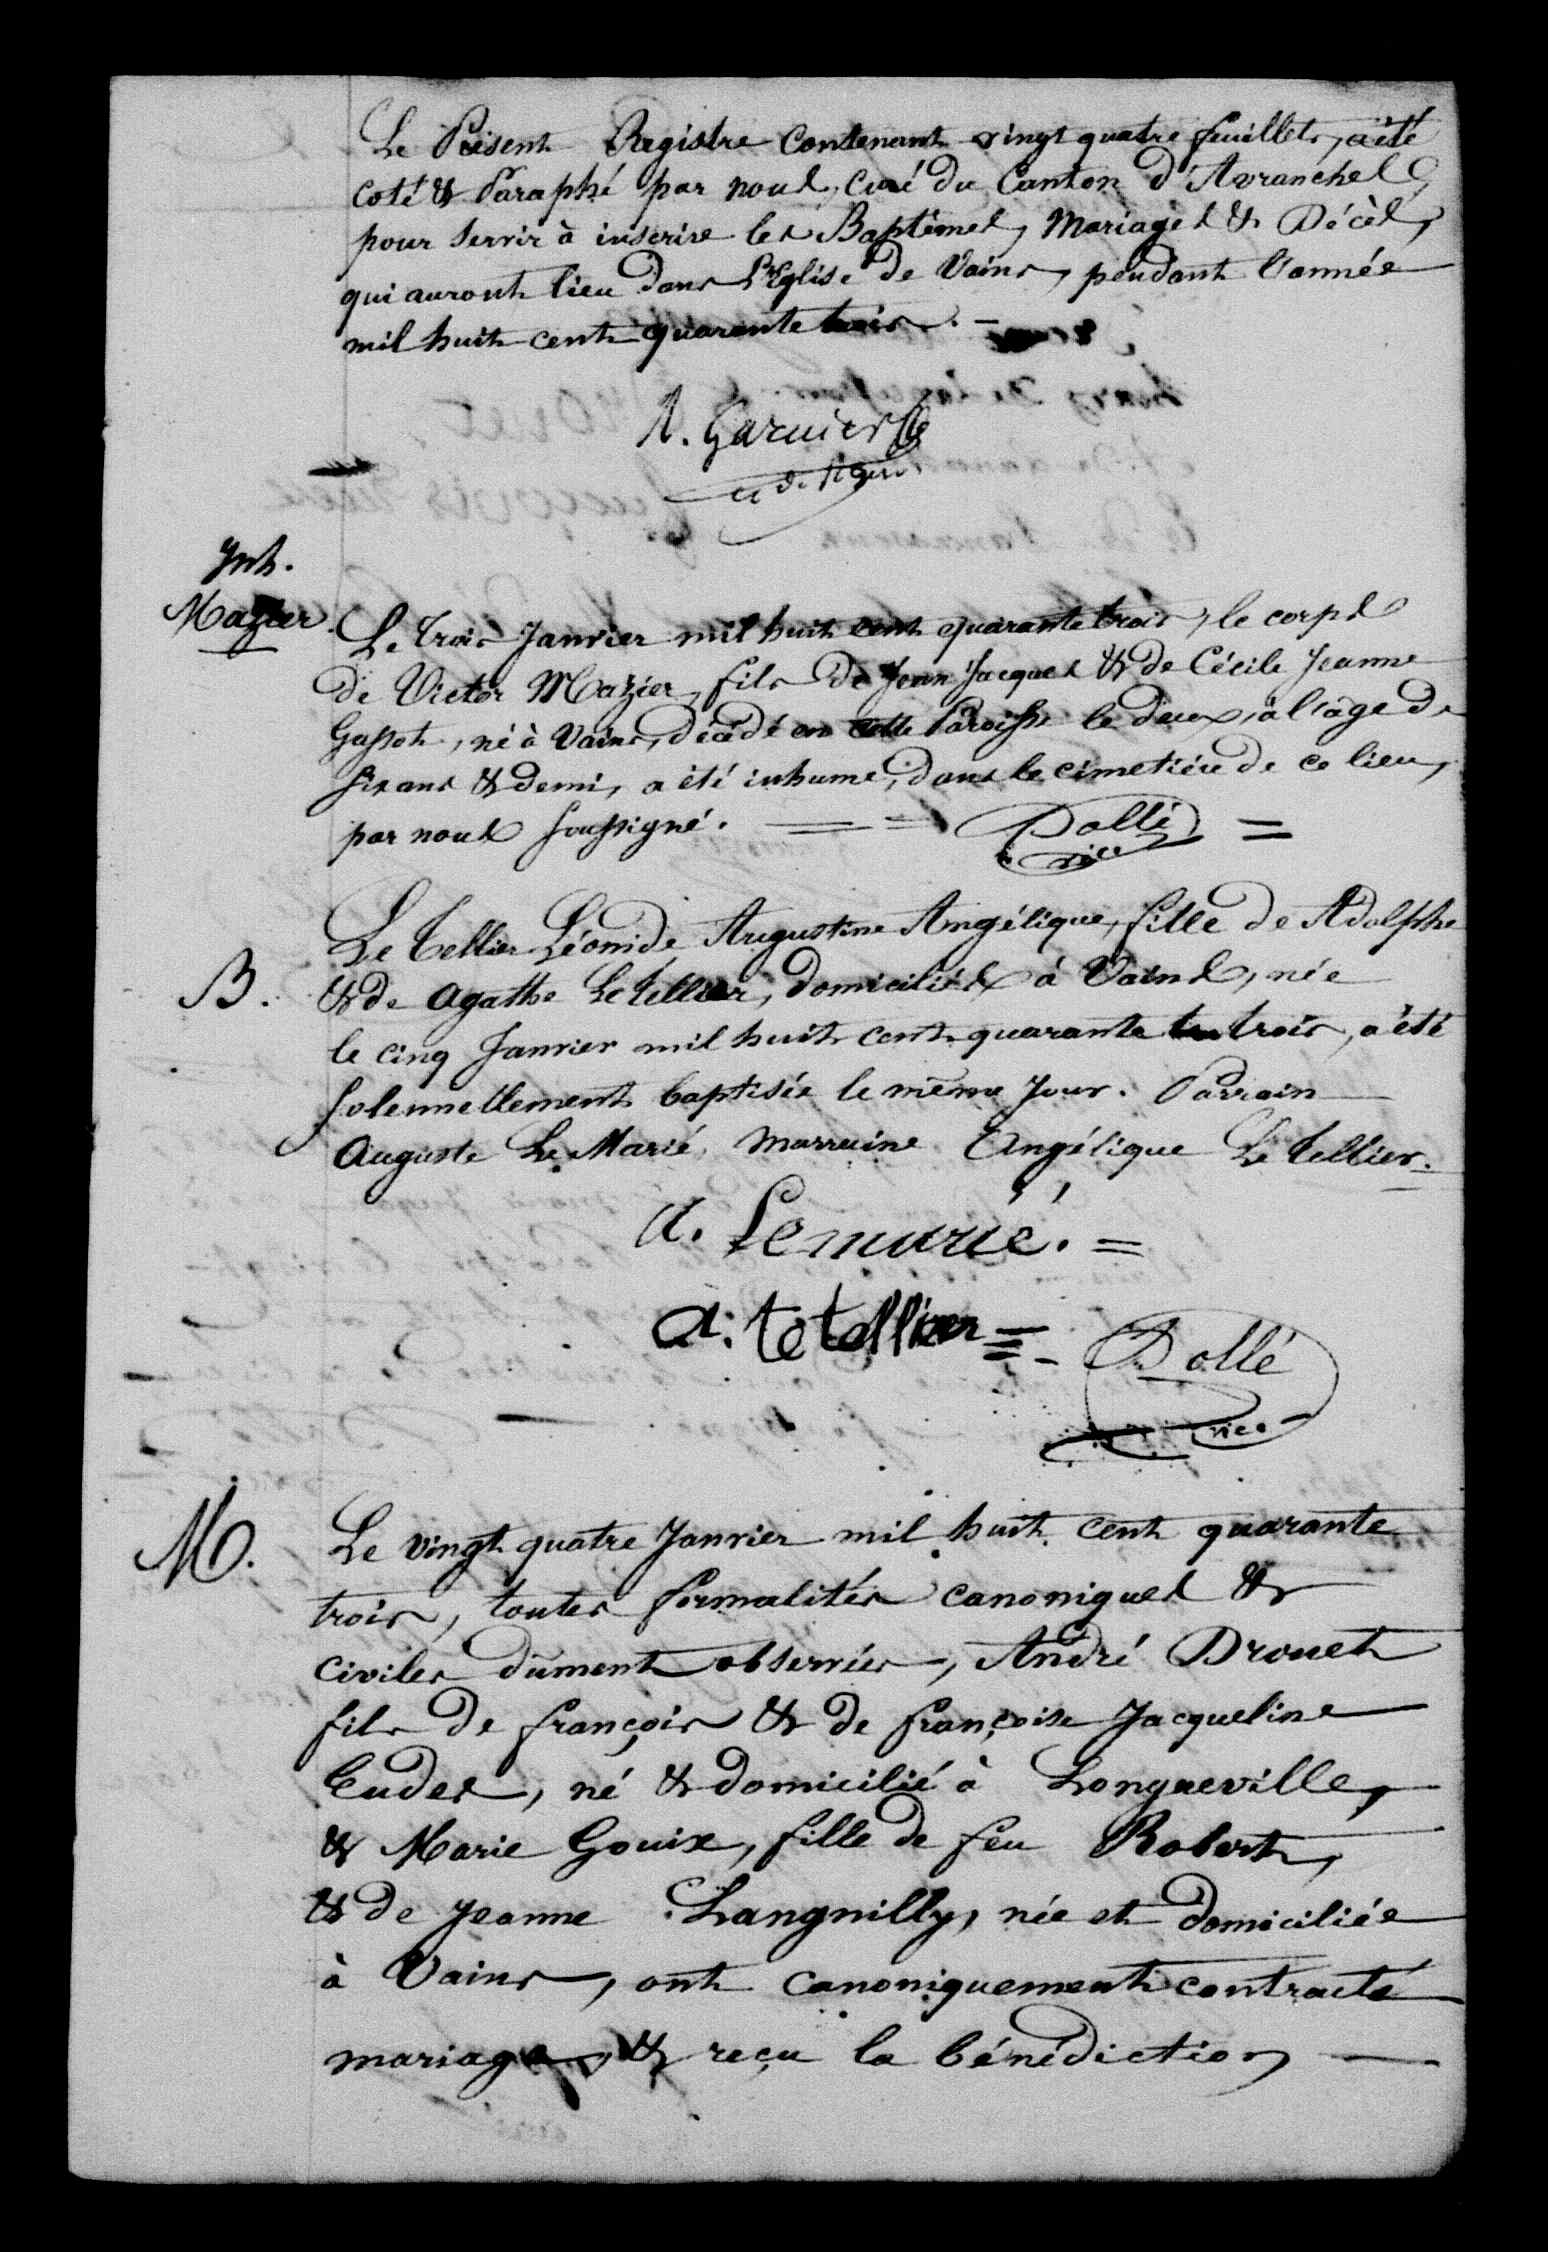 Le Présent Registre Contenant vingt quatre feuillets, a été
coté & Paraphé par nous, curé du Canton d'Avranches,
pour servir à inscrire les Baptêmes, Mariages & Décès,
qui auront lieu dans L'Eglise de Vains, pendant l'année
mil huit cent quarante trois. -
A. Garnier
Inh.
Mazier
Le trois Janvier mil huit cent quarante trois, le corps
de Victor Mazier, fils de Jean Jacques & de Cécile Jeanne
Gassot, né à Vains, décédé en cette Paroisse le deux, à l'âge de
six ans & demi, a été inhumé, dans le cimetière de ce lieu,
par nous soussigné. Dollé
vice
B.
Le Tellier Léonide Augustine Angélique, fille de Adolphe
& de Agathe Le tellier, domiciliés à Vains, née
le cinq Janvier mil huit cent quarante trois, a été
solennellement baptisée le même Jour. Parrain
Auguste Le Marié, marraine Angélique Le tellier.
A. Lemarié. =
a. letellier =
Dollé
vice
M.
Le vingt quatre Janvier mil huit cent quarante
trois, toutes formalités canoniques &
civiles dûment observées, André Drouet
fils de françois & de françoise Jacqueline
Eudes, né & domicilié à Longueville,
& Marie Gouix, fille de feu Robert,
& de Jeanne Langnilly, née et domiciliée
à Vains, ont canoniquement contracté
mariage, & reçu la bénédiction